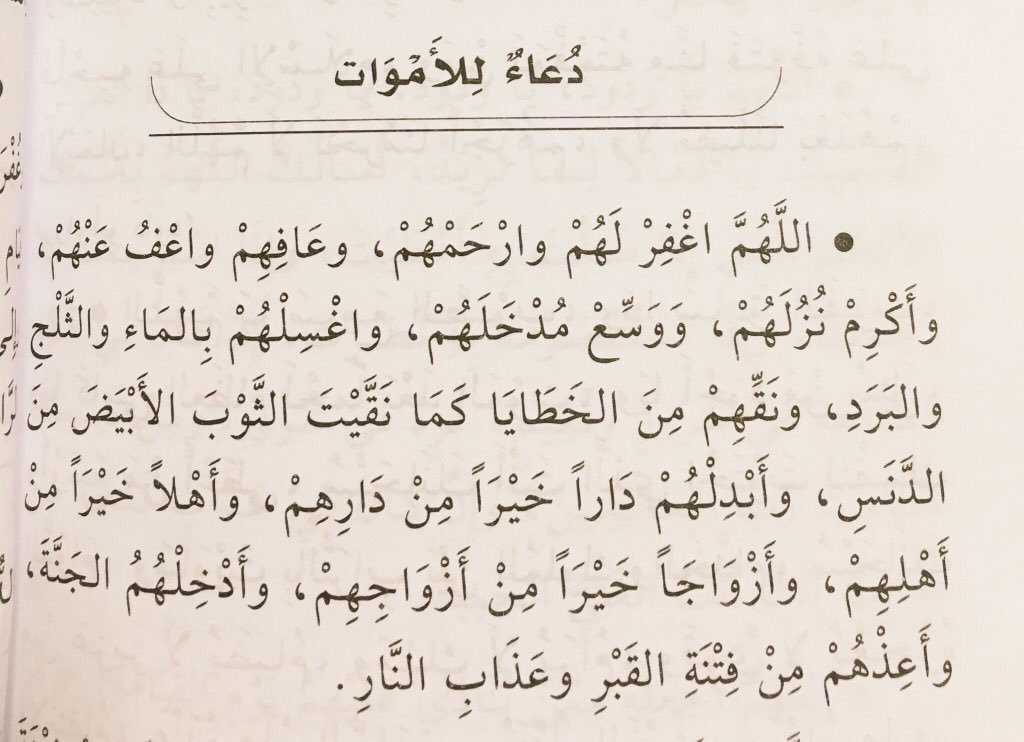 دُعَاءٌ لِلأَمْوَات
● اللَّهُمَّ اغْفِرْ لَهُمْ وارْحَمْهُمْ، وعَافِهِمْ واعْفُ عَنْهُمْ،
وأَكْرِمْ نُزُلَهُم، وَوَسِّعْ مُدْخَلَهُمْ، واغْسِلْهُمْ بِالمَاءِ والثَّلْجِ
والبَرَدِ، ونَقِّهِمْ مِنَ الخَطَايَا كَمَا نَقَّيْتَ الثَّوْبَ الأَبْيَضَ مِنَ
الدَّنَسِ، وأَبْدِلْهُمْ دَاراً خَيْرَاً مِنْ دَارِهِمْ، وأَهْلاً خَيْرَاً مِنْ
أَهْلِهِمْ، وأَزْوَاجَاً خَيْرَاً مِنْ أَزْوَاجِهِمْ، وأَدْخِلْهُمُ الجَنَّةَ،
وأَعِذْهُمْ مِنْ فِتْنَةِ القَبْرِ وعَذَابِ النَّارِ.